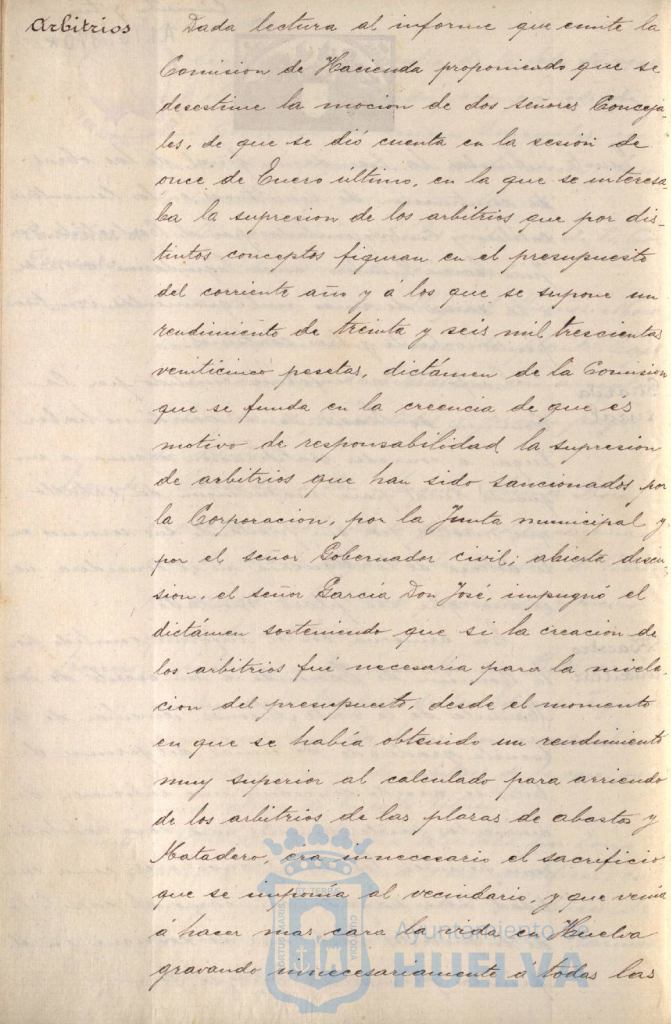 Arbitrios
Dada lectura al informe que emite la
Comision de Hacienda proponiendo que se
desestime la mocion de dos señores Conceja-
les, de que se dió cuenta en la sesión de
once de Enero último, en la que se interesa-
ba la supresion de los arbitrios que por dis-
tintos conceptos figuran en el presupuesto
del corriente año y á los que se supone un
rendimiento de treinta y seis mil trescientas
veinticinco pesetas, dictámen de la Comision
que se funda en la creencia de que es
motivo de responsabilidad la supresion
de arbitrios que han sido sancionados por
la Corporacion, por la Junta municipal y
por el señor Gobernador civil; abierta discu-
sion, el señor García Don José, impugnó el
dictámen sosteniendo que si la creacion de
los arbitrios fué necesaria para la nivela-
cion del presupuesto, desde el momento
en que se había obtenido un rendimiento
muy superior al calculado para arriendo
de los arbitrios de las plazas de abastos y
Matadero, era innecesario el sacrificio
que se imponia al vecindario, y que venía
á hacer mas cara la vida en Huelva
gravando innecesariamente á todas las
PORTUS MARIS ET TERRÆ CUSTODIA
Ayuntamiento de
HUELVA